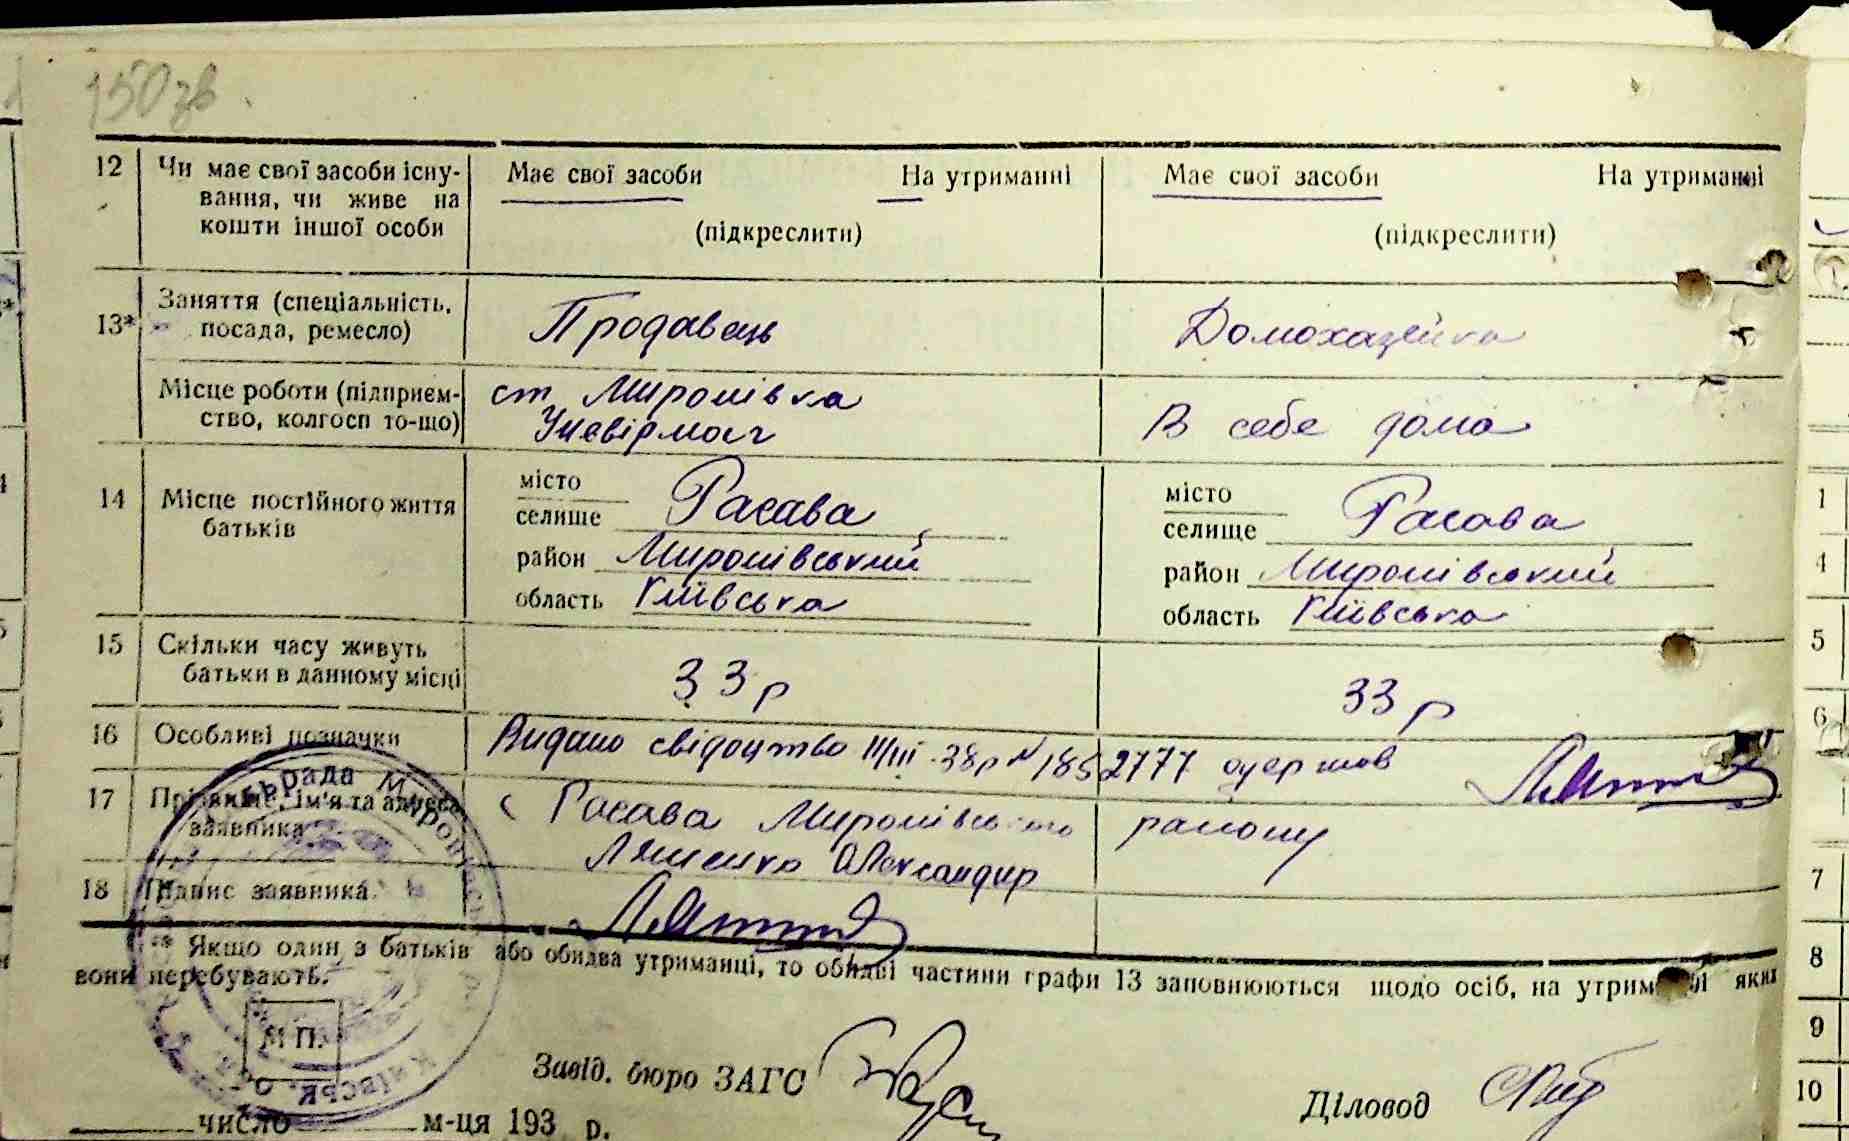 150 зв.
12 Чи має свої засоби існу- Має свої засоби На утриманні Має свої засоби На утриманні
вання, чи живе на (підкреслити) (підкреслити)
кошти іншої особи
13* Заняття (спеціальність, Продавець Домохазяйка
посада, ремесло)
Місце роботи (підприєм- ст Миронівка
ство, колгосп то-що) Унєвірмаг В себе дома
14 Місце постійного життя місто Расава місто Расава
батьків селище селище
район Миронівський район Миронівський
область Київська область Київська
15 Скільки часу живуть 33 р 33 р
батьки в данному місці
16 Особливі позначки Видано свідоцтво 11/III 38р № 1852777 одержав
17 Прізвище, ім'я та адреса с Расава Миронівського району
заявника Ляшенко Олександир
18 Підпис заявника
** Якщо один з батьків або обидва утриманці, то обидві частини графи 13 заповнюються щодо осіб, на утриманні яких
вони перебувають.
М П.
Завід. бюро ЗАГС
Діловод
число м-ця 193 р.
1
4
5
6
7
8
9
10